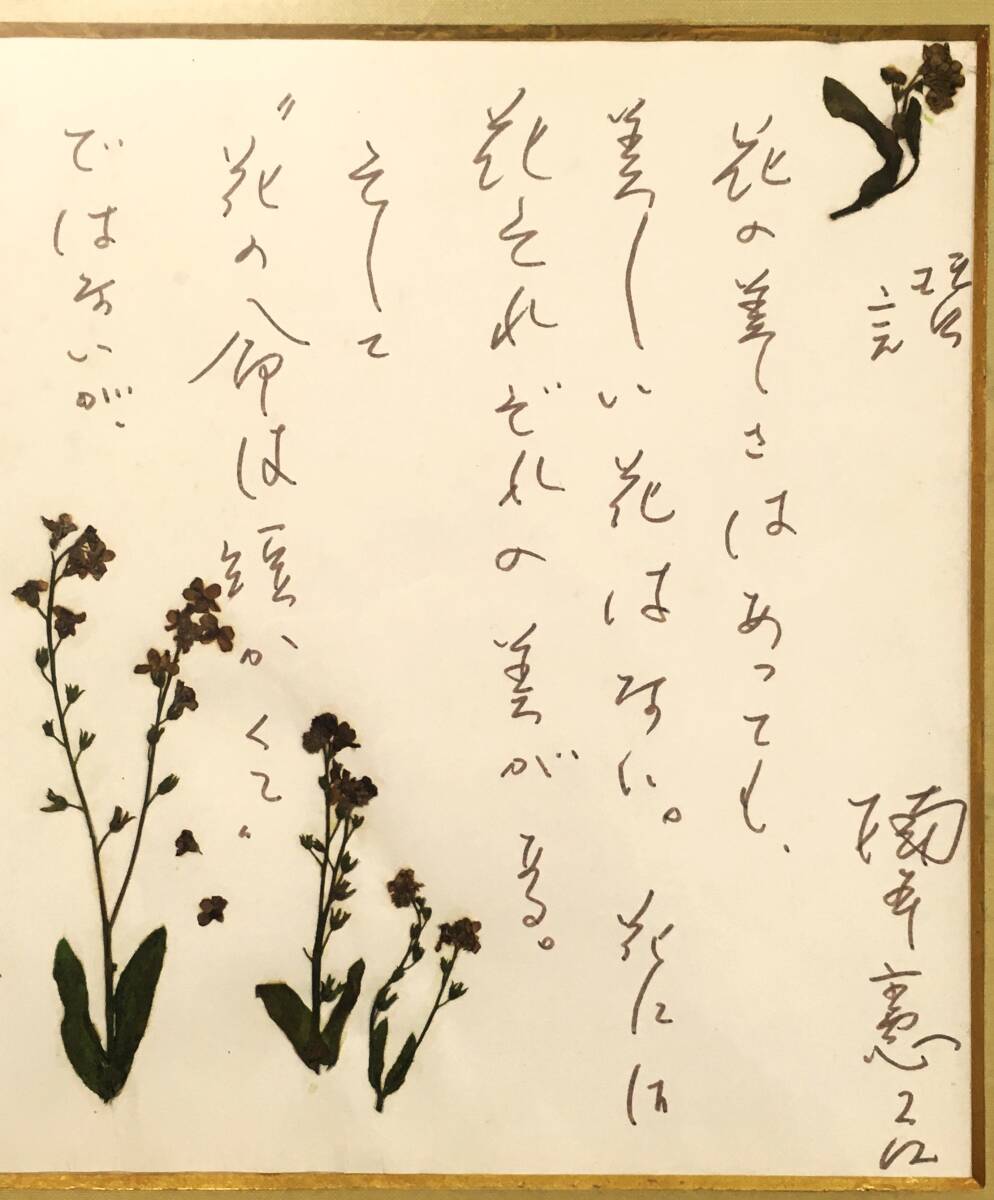 花の美しさはあっても、
美しい花はない。花には
花それぞれの美がある。
そして
〝花の命は短かくて〟
ではないが、